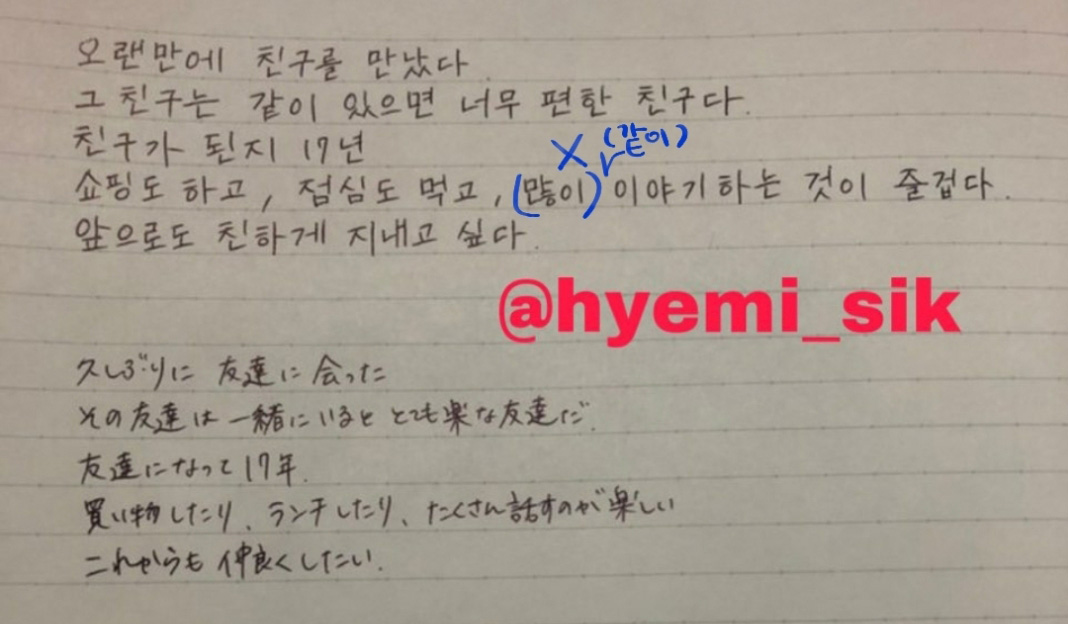 오랜만에 친구를 만났다
그 친구는 같이 있으면 너무 편한 친구다.
친구가 된지 17년
X (같이)
쇼핑도 하고, 점심도 먹고, (많이) 이야기하는 것이 즐겁다.
앞으로도 친하게 지내고 싶다.
@hyemi_sik
久しぶりに 友達に会った
その友達は 一緒にいると とても楽な友達だ.
友達になって17年.
買い物したり、ランチしたり、たくさん話すのが楽しい
これからも 仲良くしたい.